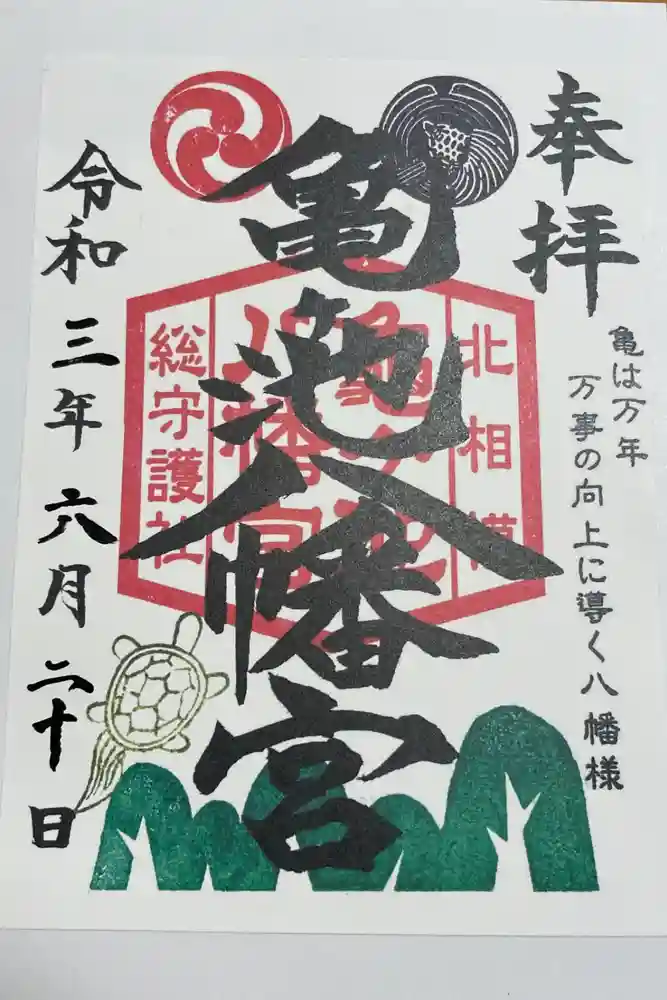 奉拝
亀は万年
万事の向上に導く八幡様
亀池八幡宮
北相模
亀の池
八幡宮
総守護社
令和三年六月二十日